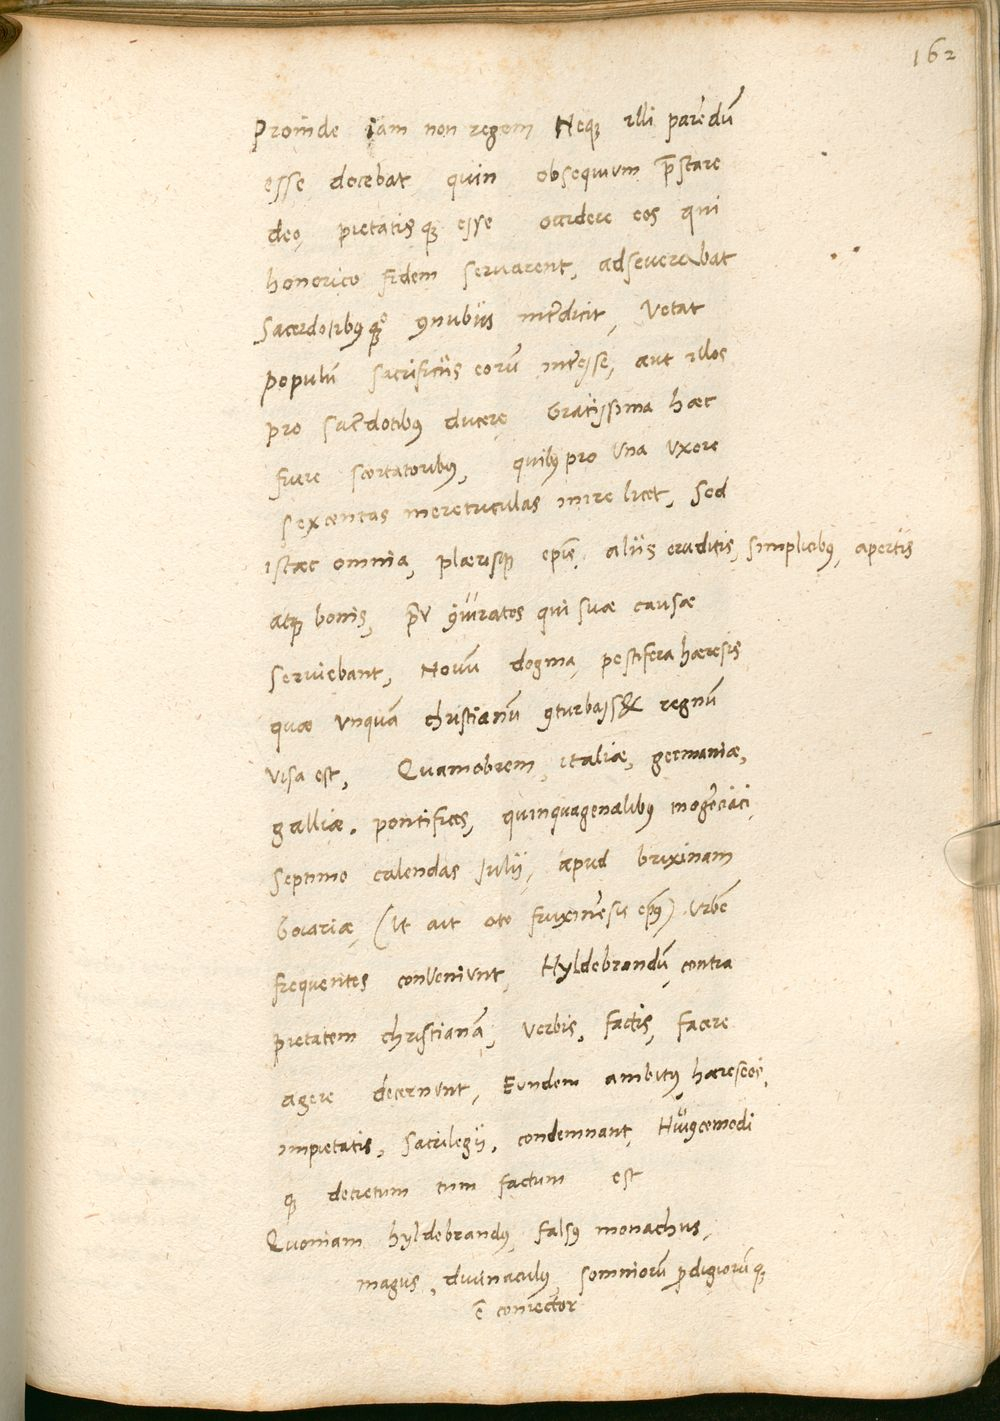 162
Proinde iam non regem Neqꝫ illi parēdū
esse docebat quin obsequium p̄stare
deo, pietatisqꝫ esse occidere eos qui
honorico fidem servarent, adseverabat
Sacerdotibꝰqꝫ ꝯnubiis int̄dicit, Vetat
populū sacrificiis eorū int̄esse, aut illos
pro sac̄dotibꝰ ducere Gratissima hæc
fuere scortatoribꝰ, quibꝰ pro una uxore
sexcentas meretriculas inire licet, Sed
istæc omnia, plærisqꝫ ep̄is, aliis eruditis, simplicibꝰ, apertis
atqꝫ bonis, p̄t ꝯiuratos qui suæ causæ
serviebant, Novū dogma, pestifera hæresis
quæ unquā christianū ꝯturbass& regnū
visa est, Quamobrem, italiæ, germaniæ,
galliæ, pontifices, quinquagenalibꝰ mogūciaci,
septimo calendas Julii, apud brixinam
Boiariæ, (Ut ait oto fruxinēsis ep̄ꝰ) Urbē
frequentes conveniunt, Hyldebrandū, contra
pietatem christianā, verbis, factis, facere
agere decernunt, Eundem ambitꝰ, hæreseos,
impietatis, sacrilegii, condemnant, Huiꝰcemodi
qꝫ decretum tum factum est
Quoniam hyldebrandꝰ, falsꝰ monachus,
magus, divinaculꝰ, somniorū prodigiorūqꝫ
ē coniector